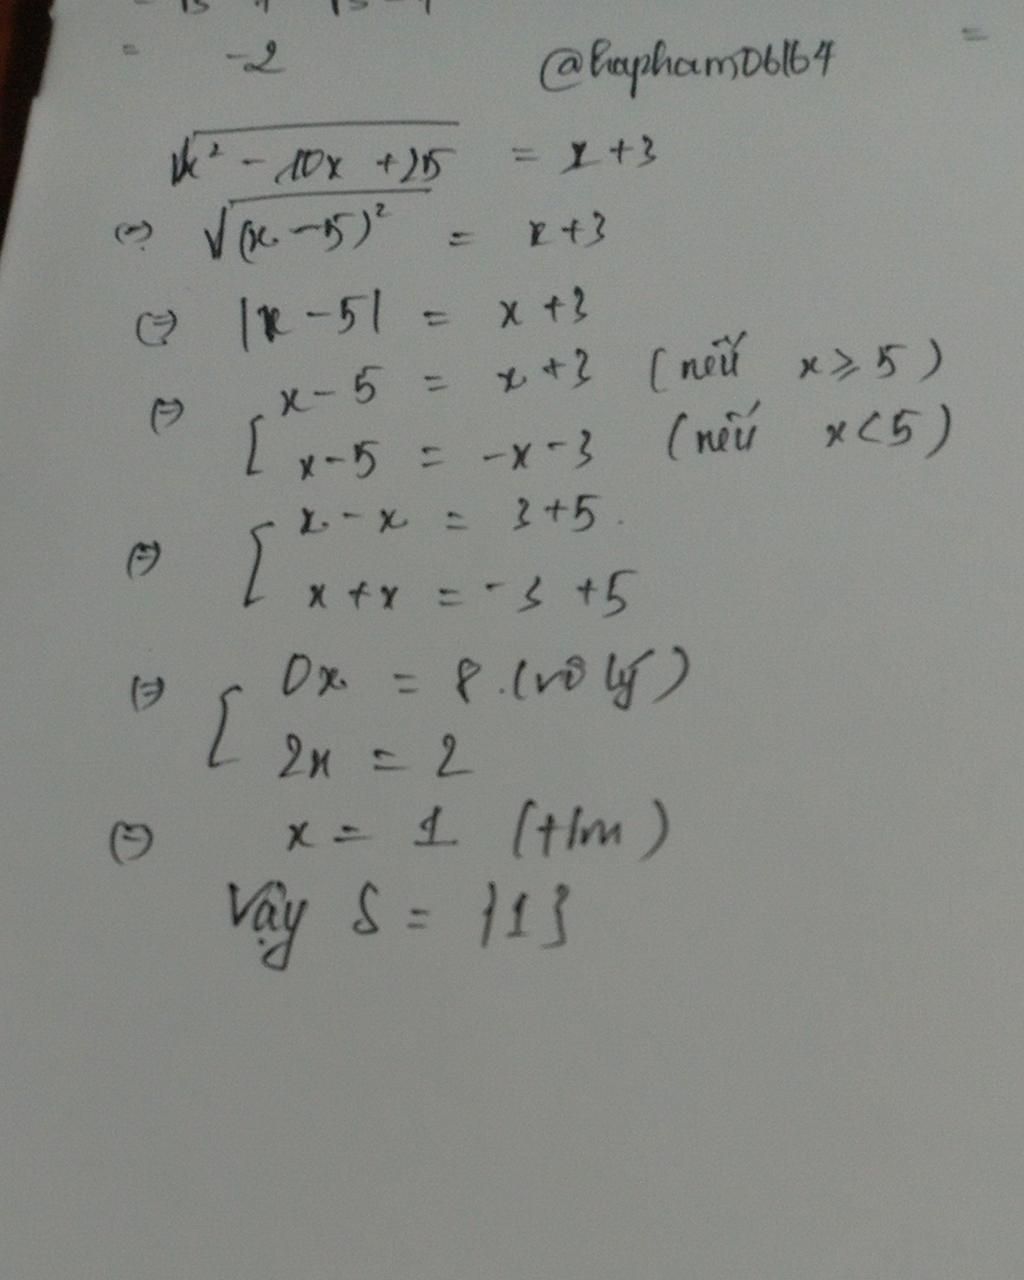 = -2 @hapham06164 =
√x² - 10x + 25 = x + 3
(=) √(x - 5)² = x + 3
(=) |x - 5| = x + 3
(=) [ x - 5 = x + 3 (nếu x ⩾ 5)
x - 5 = -x - 3 (nếu x < 5)
(=) [ x - x = 3 + 5.
x + x = -3 + 5
(=) [ 0x = 8. (vô lý)
2x = 2
(=) x = 1 (t/m)
Vậy S = {1}